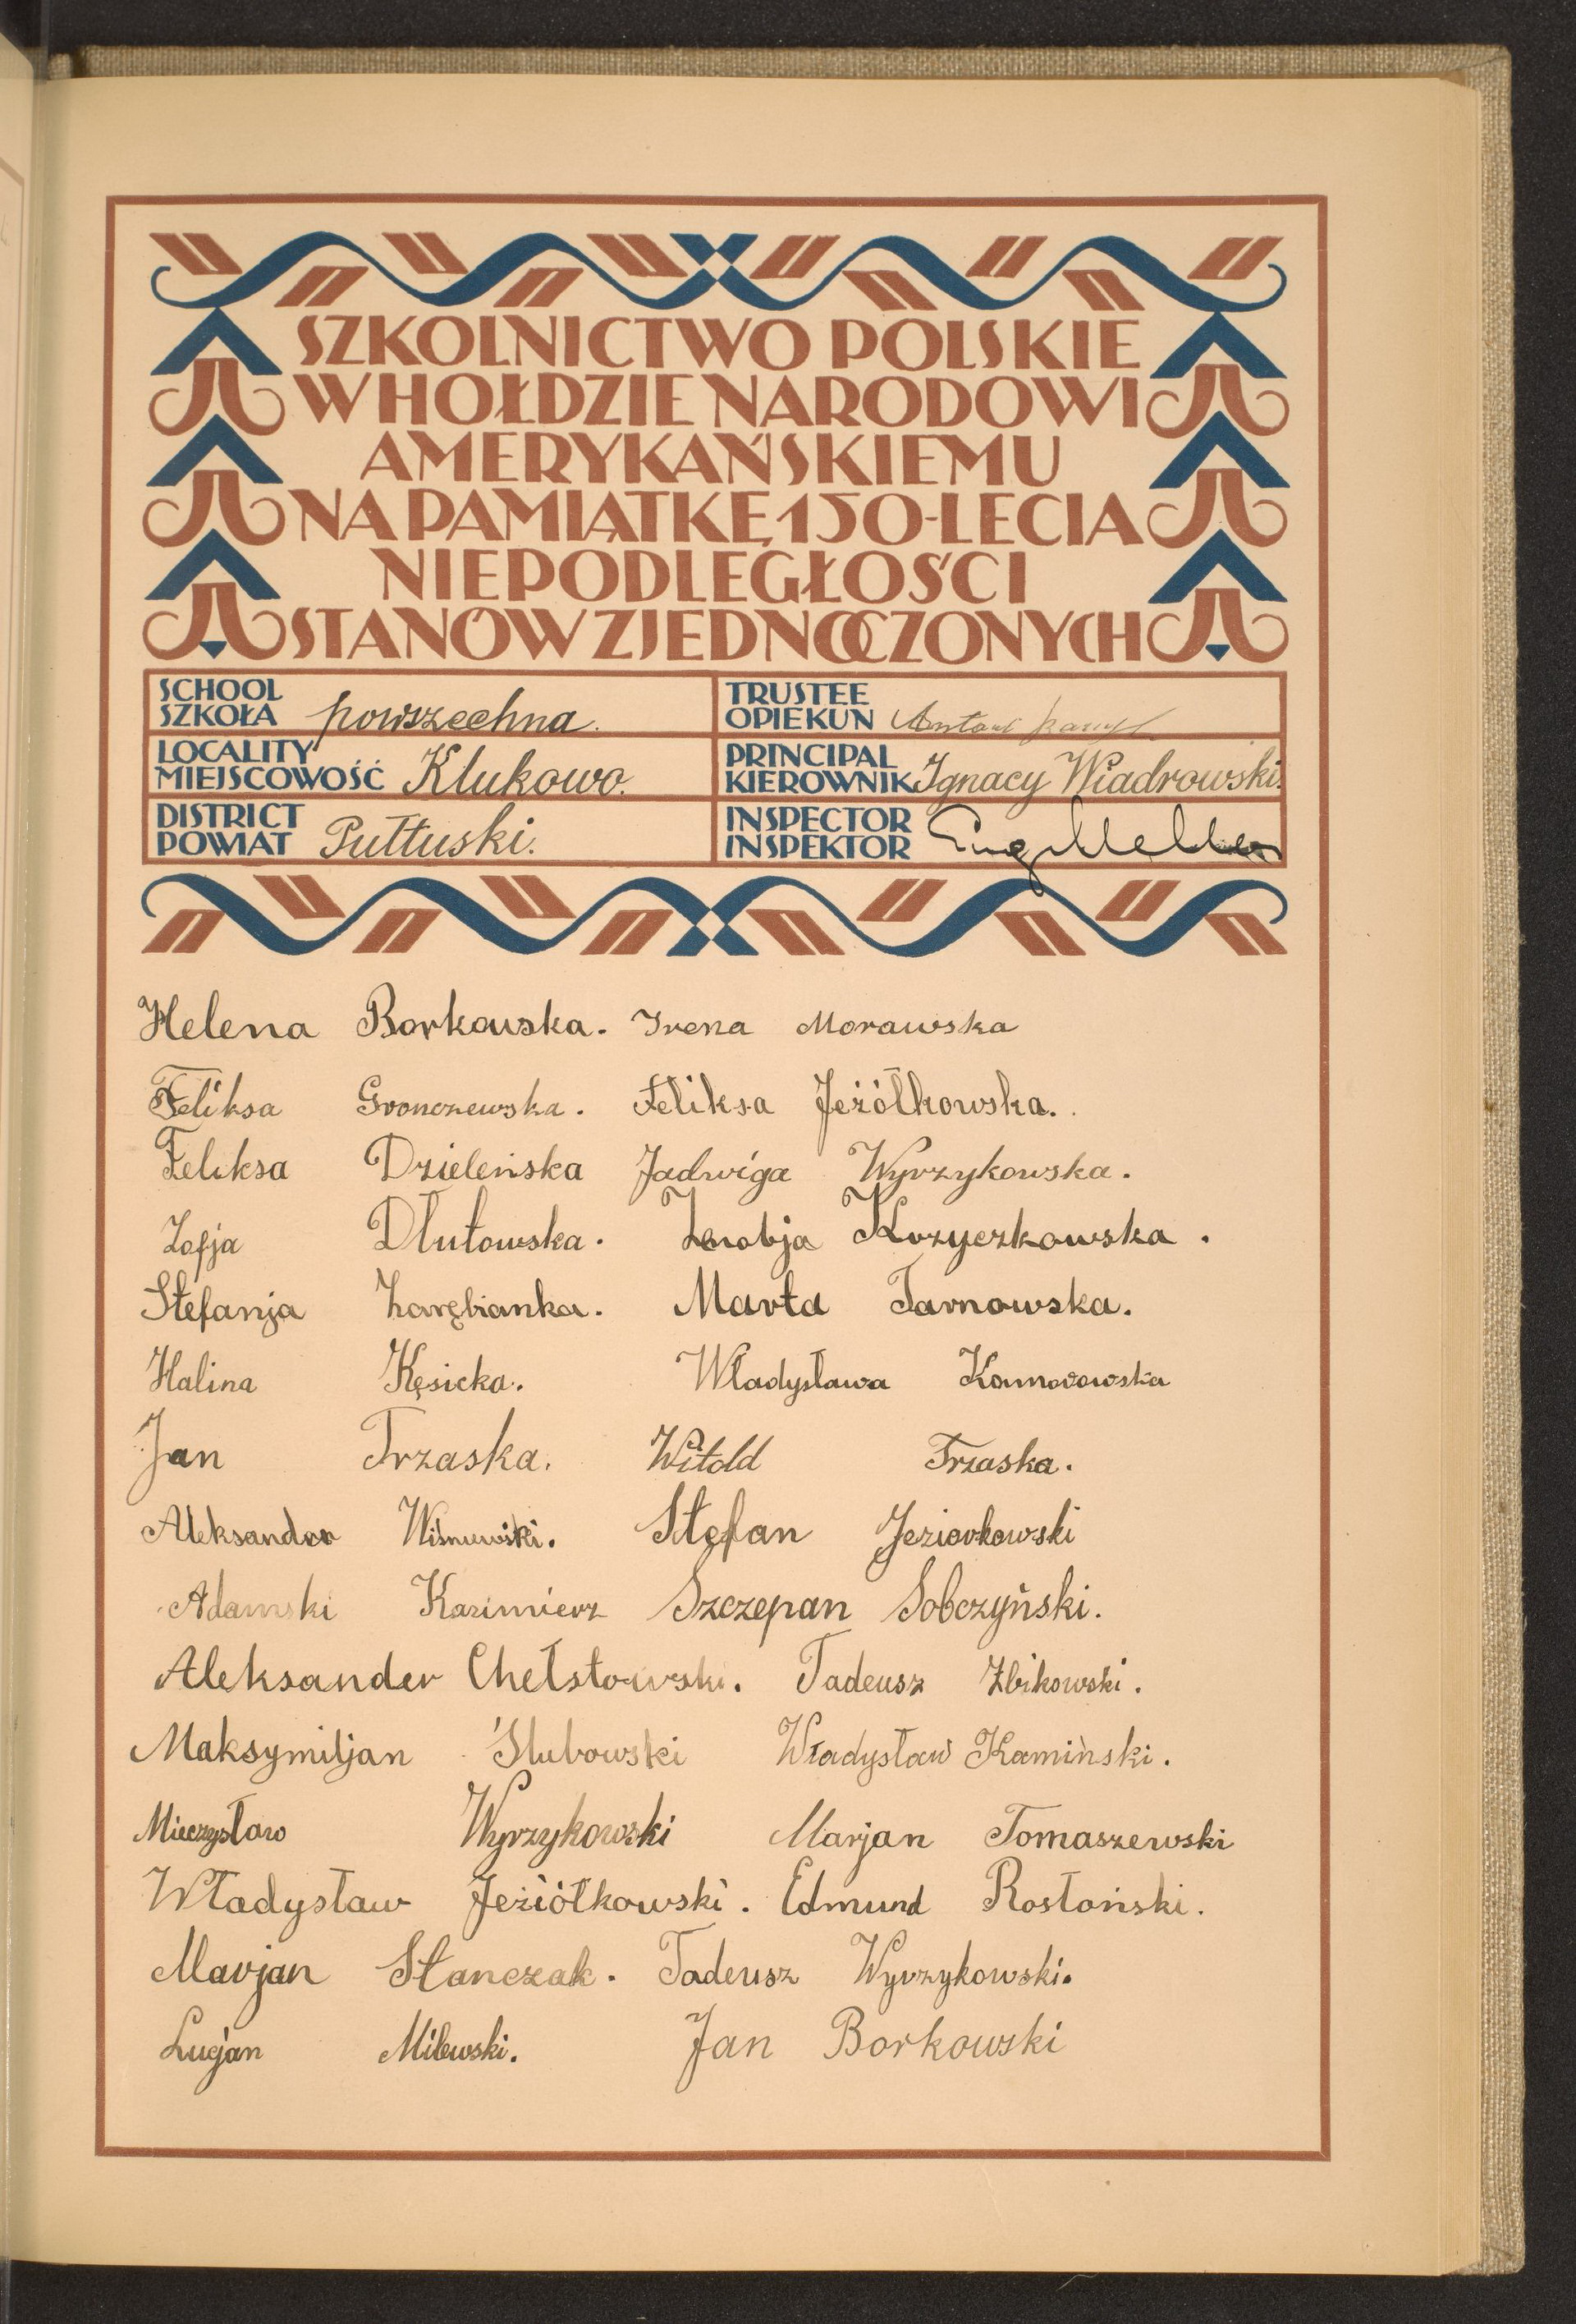 SZKOLNICTWO POLSKIE
W HOŁDZIE NARODOWI
AMERYKAŃSKIEMU
NA PAMIĄTKĘ 150-LECIA
NIEPODLEGŁOŚCI
STANÓW ZJEDNOCZONYCH
SCHOOL
SZKOŁA powszechna.
TRUSTEE
OPIEKUN Antoni
LOCALITY
MIEJSCOWOŚĆ Klukowo.
PRINCIPAL
KIEROWNIK Ignacy Wiadrowski.
DISTRICT
POWIAT Pułtuski.
INSPECTOR
INSPEKTOR
Helena Borkowska. Irena Morawska
Feliksa Gronczewska. Feliksa Jeżiółkowska.
Feliksa Dzieleńska Jadwiga Wyrzykowska.
Zofja Dłutowska. Zenobja Krzyczkowska.
Stefanja Zarębianka. Marta Tarnowska.
Halina Kęsicka. Władysława Komorowska
Jan Trzaska. Witold Trzaska.
Aleksander Wiśniewski. Stefan Jeziorkowski
Adamski Kazimierz Szczepan Sobczyński.
Aleksander Chełstowski. Tadeusz Zbikowski.
Maksymiljan Ślubowski Władysław Kamiński.
Mieczysław Wyrzykowski Marjan Tomaszewski
Władysław Jeżiółkowski. Edmund Rostoński.
Marjan Stanczak. Tadeusz Wyrzykowski.
Lucjan Milewski. Jan Borkowski